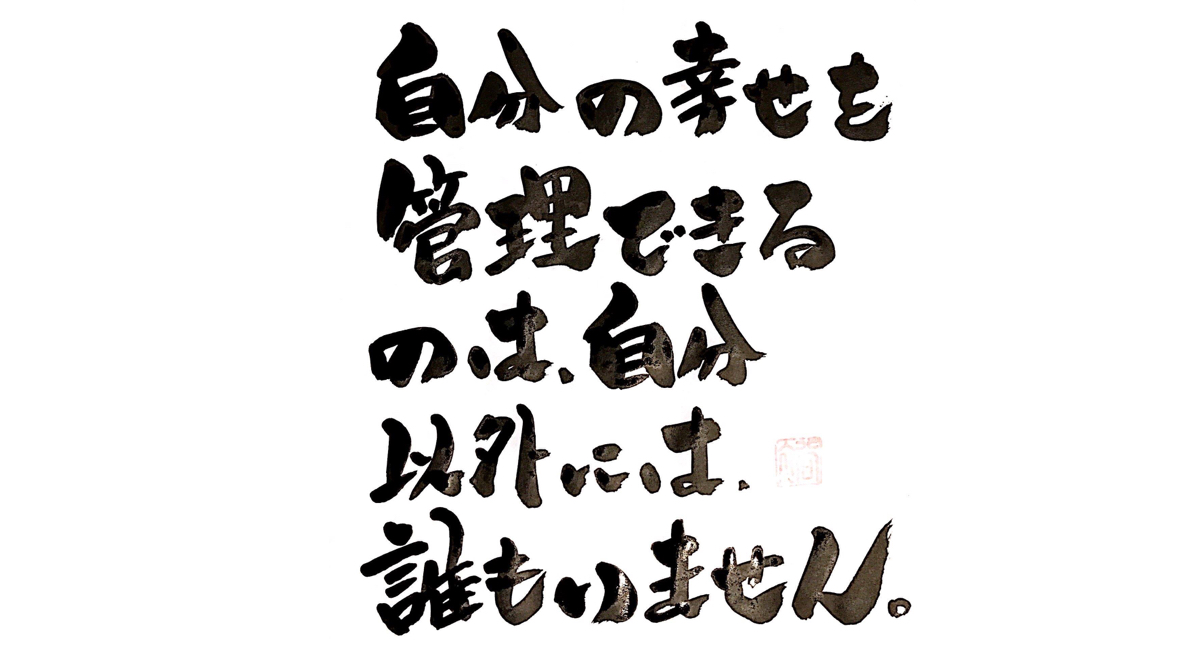 自分の幸せを
管理できる
のは、自分
以外には、
誰もいません。